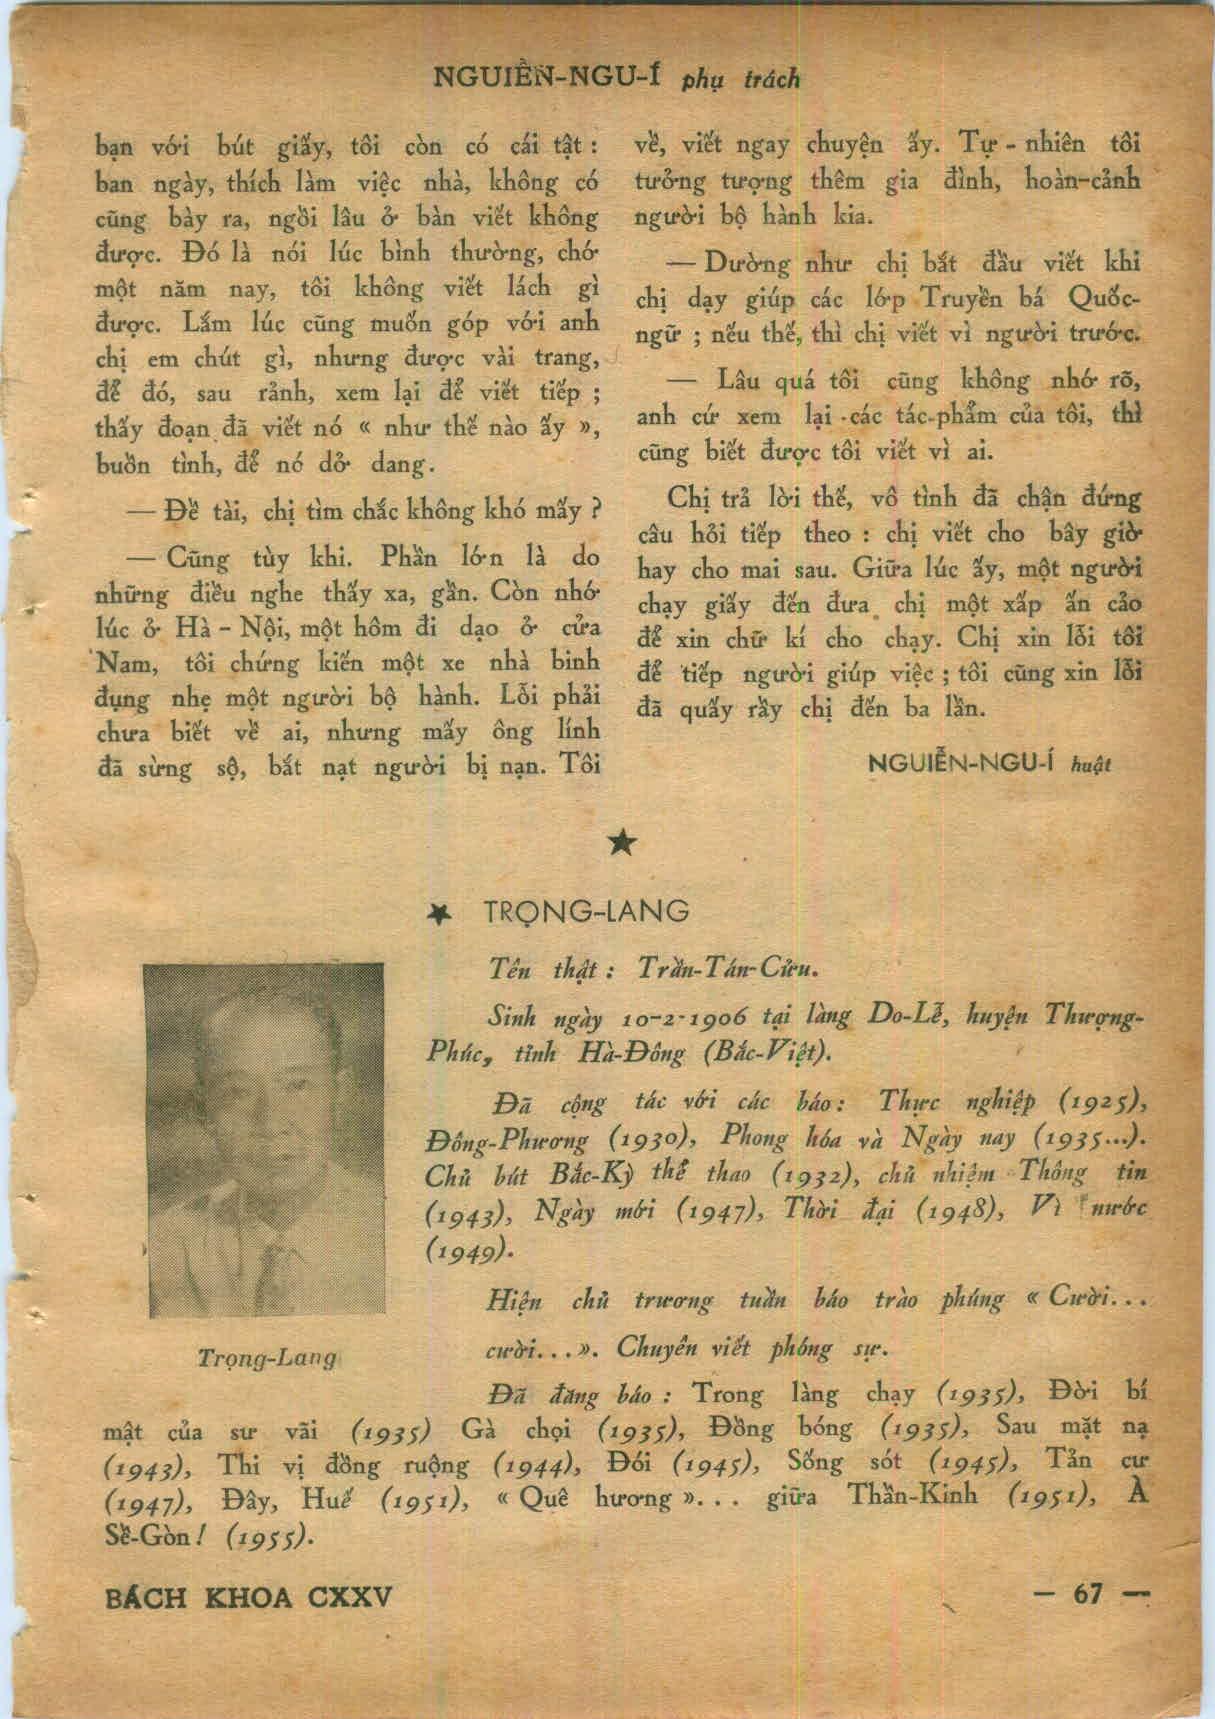 NGUIỄN-NGU-Í phụ trách
bạn với bút giấy, tôi còn có cái tật :
ban ngày, thích làm việc nhà, không có
cũng bày ra, ngồi lâu ở bàn viết không
được. Đó là nói lúc bình thường, chớ
một năm nay, tôi không viết lách gì
được. Lắm lúc cũng muốn góp với anh
chị em chút gì, nhưng được vài trang,
để đó, sau rảnh, xem lại để viết tiếp ;
thấy đoạn đã viết nó « như thế nào ấy »,
buồn tình, để nó dở dang.
— Đề tài, chị tìm chắc không khó mấy ?
— Cũng tùy khi. Phần lớn là do
những điều nghe thấy xa, gần. Còn nhớ
lúc ở Hà - Nội, một hôm đi dạo ở cửa
Nam, tôi chứng kiến một xe nhà binh
đụng nhẹ một người bộ hành. Lỗi phải
chưa biết về ai, nhưng mấy ông lính
đã sừng sộ, bắt nạt người bị nạn. Tôi
về, viết ngay chuyện ấy. Tự - nhiên tôi
tưởng tượng thêm gia đình, hoàn-cảnh
người bộ hành kia.
— Dường như chị bắt đầu viết khi
chị dạy giúp các lớp Truyền bá Quốc-
ngữ ; nếu thế, thì chị viết vì người trước.
— Lâu quá tôi cũng không nhớ rõ,
anh cứ xem lại các tác-phẩm của tôi, thì
cũng biết được tôi viết vì ai.
Chị trả lời thế, vô tình đã chận đứng
câu hỏi tiếp theo : chị viết cho bây giờ
hay cho mai sau. Giữa lúc ấy, một người
chạy giấy đến đưa chị một xấp ấn cảo
để xin chữ kí cho chạy. Chị xin lỗi tôi
để tiếp người giúp việc ; tôi cũng xin lỗi
đã quấy rầy chị đến ba lần.
NGUIỄN-NGU-Í huật
★
★ TRỌNG-LANG
Tên thật : Trần-Tán-Cửu.
Sinh ngày 10-2-1906 tại làng Do-Lễ, huyện Thượng-
Phúc, tỉnh Hà-Đông (Bắc-Việt).
Đã cộng tác với các báo : Thực nghiệp (1925),
Đông-Phương (1930), Phong hóa và Ngày nay (1935...).
Chủ bút Bắc-Kỳ thể thao (1932), chủ nhiệm Thông tin
(1943), Ngày mới (1947), Thời đại (1948), Vì nước
(1949).
Hiện chủ trương tuần báo trào phúng « Cười...
cười...». Chuyên viết phóng sự.
Trọng-Lang
Đã đăng báo : Trong làng chạy (1935), Đời bí
mật của sư vãi (1935) Gà chọi (1935), Đồng bóng (1935), Sau mặt nạ
(1943), Thi vị đồng ruộng (1944), Đói (1945), Sống sót (1945), Tản cư
(1947), Đây, Huế (1951), « Quê hương »... giữa Thần-Kinh (1951), À
Sề-Gòn ! (1955).
BÁCH KHOA CXXV
— 67 —